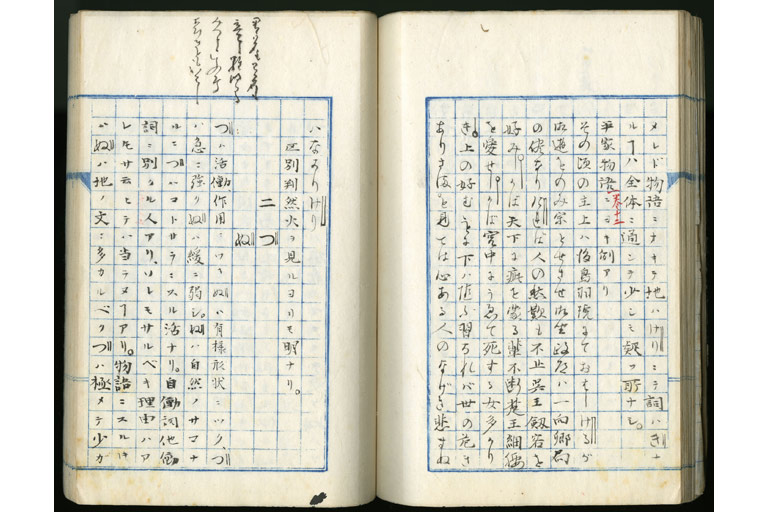 メレド物語ニナキテ地ハけりニテ詞ハきナ
ルヿハ全体ニ通シテ少シモ疑フ所ナシ。
平家物語巻十二ニモ例アリ
その頃の主上ハ後鳥羽院にておはしけるが
御遊をのみ宗とせさせ御坐政道ハ一向卿局
の侭なりければ人の愁歎も不止呉王剣客を
好みしかば天下に疵を蒙る輩不断楚王細腰
を愛せしかば宮中にうゑて死する女多かり
き。上の好むに下ハ随ふ習なれバ世の危き
ありさまを見ては心ある人のなげき悲まぬ
ハなかりけり
区別判然火ヲ見ルヨリモ明ナリ。
二 つ ぬ
つハ活働作用ニツキぬハ有様形状ニツク、つ
ハ急ニ強クぬハ緩ニ弱シ。ぬハ自然ノサマナ
ルニつハコトサラニスル活ナリ。自働詞他働
詞ニ別クル人アリ、ソレモサルベキ理由ハア
レモサ云ヒテハ当ラヌヿアリ。物語ニスルキ
ハぬハ地ノ文ニ多カルベクつハ極メテ少カ